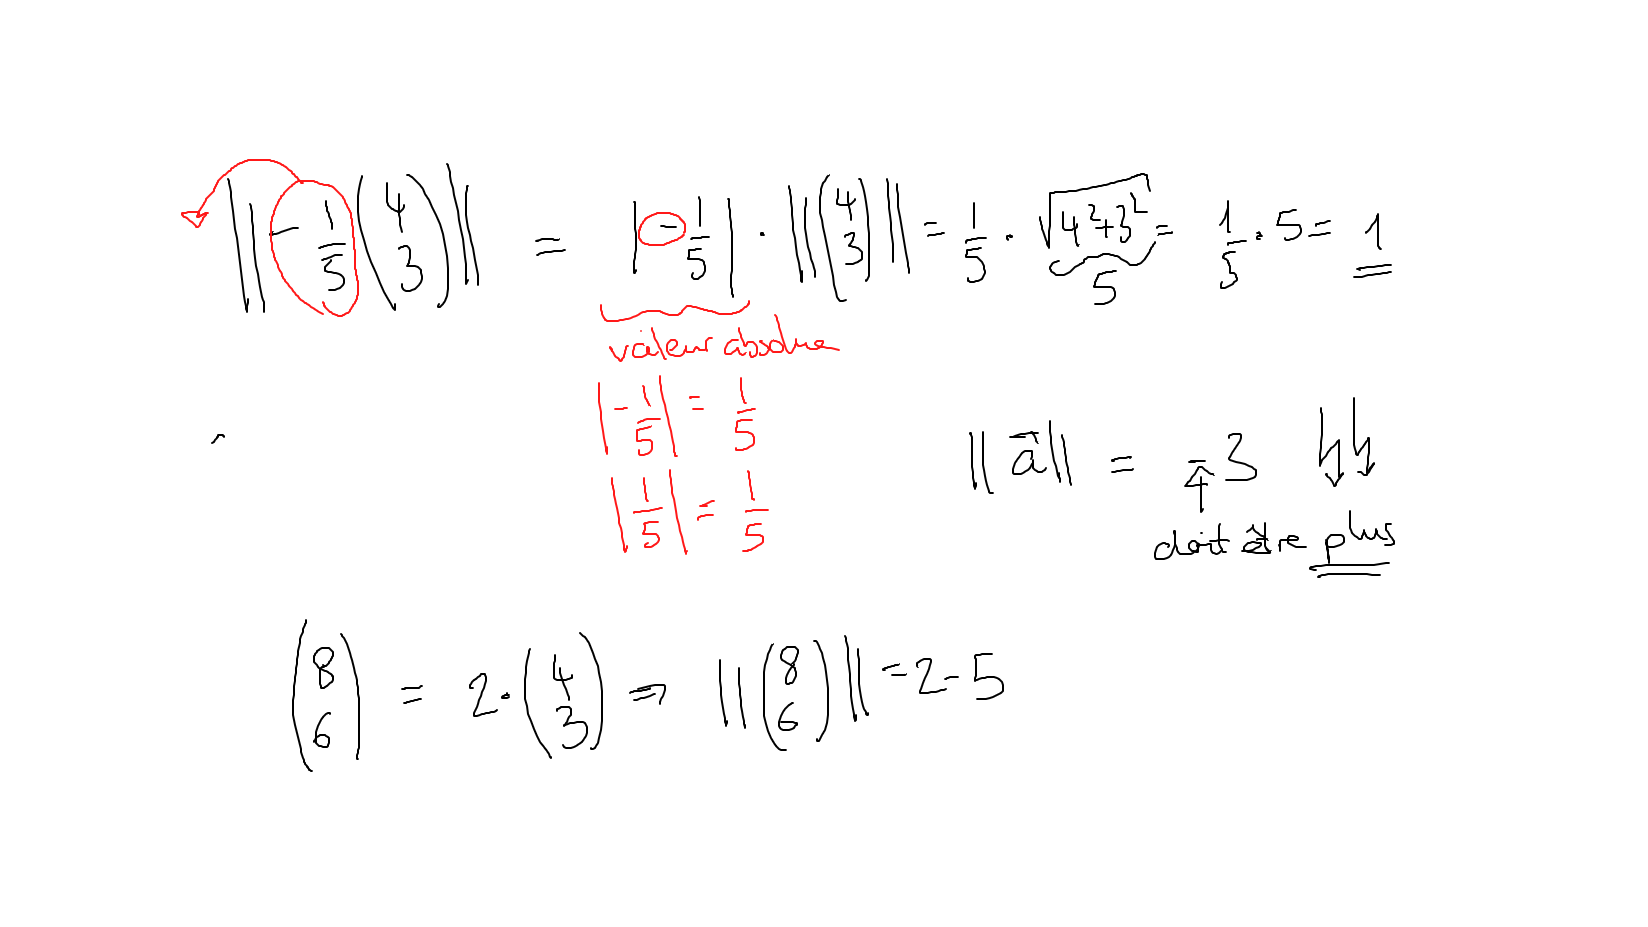 ‖-1/5 (4 3)‖ = |-1/5| · ‖(4 3)‖ = 1/5 · √(4²+3²) = 1/5 · 5 = 1
5
valeur absolue
|-1/5| = 1/5
‖a⃗‖ = -3
|1/5| = 1/5
doit être plus
(8 6) = 2 · (4 3) ⇒ ‖(8 6)‖ = 2 - 5